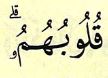 قُلُوبُهُمُۥۗ